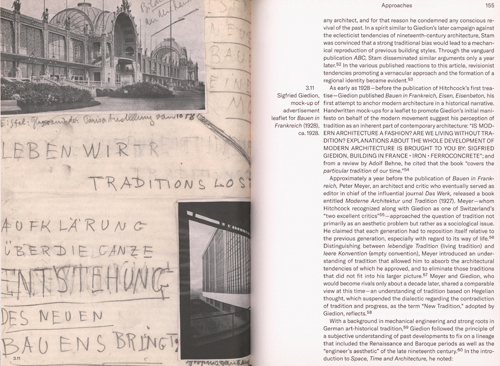 LEBEN WIR TR
TRADITIONSLOS?
AUFKLÄRUNG
ÜBER DIE GANZE
ENTSTEHUNG
DES NEUEN
BAUENS BRINGT:
3.11
Approaches
155
3.11
Sigfried Giedion,
mock-up of
advertisement
leaflet for Bauen in
Frankreich (1928),
ca. 1928.
any architect, and for that reason he condemned any conscious re-
vival of the past. In a spirit similar to Giedion's later campaign against
the eclecticist tendencies of nineteenth-century architecture, Stam
was convinced that a strong traditional bias would lead to a mechani-
cal reproduction of previous building styles. Through the vanguard
publication ABC, Stam disseminated similar arguments only a year
later.52 In the various published reactions to this article, revisionist
tendencies promoting a vernacular approach and the formation of a
regional identity became evident.53
As early as 1928—before the publication of Hitchcock's first trea-
tise—Giedion published Bauen in Frankreich, Eisen, Eisenbeton, his
first attempt to anchor modern architecture in a historical narrative.
Handwritten mock-ups for a leaflet to promote Giedion's initial mani-
festo on behalf of the modern movement suggest his perception of
tradition as an inherent part of contemporary architecture: "IS MOD-
ERN ARCHITECTURE A FASHION? ARE WE LIVING WITHOUT TRA-
DITION? EXPLANATIONS ABOUT THE WHOLE DEVELOPMENT OF
MODERN ARCHITECTURE IS BROUGHT TO YOU BY: SIGFRIED
GIEDION, BUILDING IN FRANCE · IRON · FERROCONCRETE"; and
from a review by Adolf Behne, he cited that the book "covers the
particular tradition of our time."54
Approximately a year before the publication of Bauen in Frank-
reich, Peter Meyer, an architect and critic who eventually served as
editor in chief of the influential journal Das Werk, released a book
entitled Moderne Architektur und Tradition (1927). Meyer—whom
Hitchcock recognized along with Giedion as one of Switzerland's
"two excellent critics"55—approached the question of tradition not
primarily as an aesthetic problem but rather as a sociological issue.
He claimed that each generation had to reposition itself relative to
the previous generation, especially with regard to its way of life.56
Distinguishing between lebendige Tradition (living tradition) and
leere Konvention (empty convention), Meyer introduced an under-
standing of tradition that allowed him to absorb the architectural
tendencies of which he approved, and to eliminate those traditions
that did not fit into his larger picture.57 Meyer and Giedion, who
would become rivals only about a decade later, shared a comparable
view at this time—an understanding of tradition based on Hegelian
thought, which suspended the dialectic regarding the contradiction
of tradition and progress, as the term "New Tradition," adopted by
Giedion, reflects.58
With a background in mechanical engineering and strong roots in
German art-historical tradition,59 Giedion followed the principle of
a subjective understanding of past developments to fix on a lineage
that included the Renaissance and Baroque periods as well as the
"engineer's aesthetic" of the late nineteenth century.60 In the intro-
duction to Space, Time and Architecture, he noted: